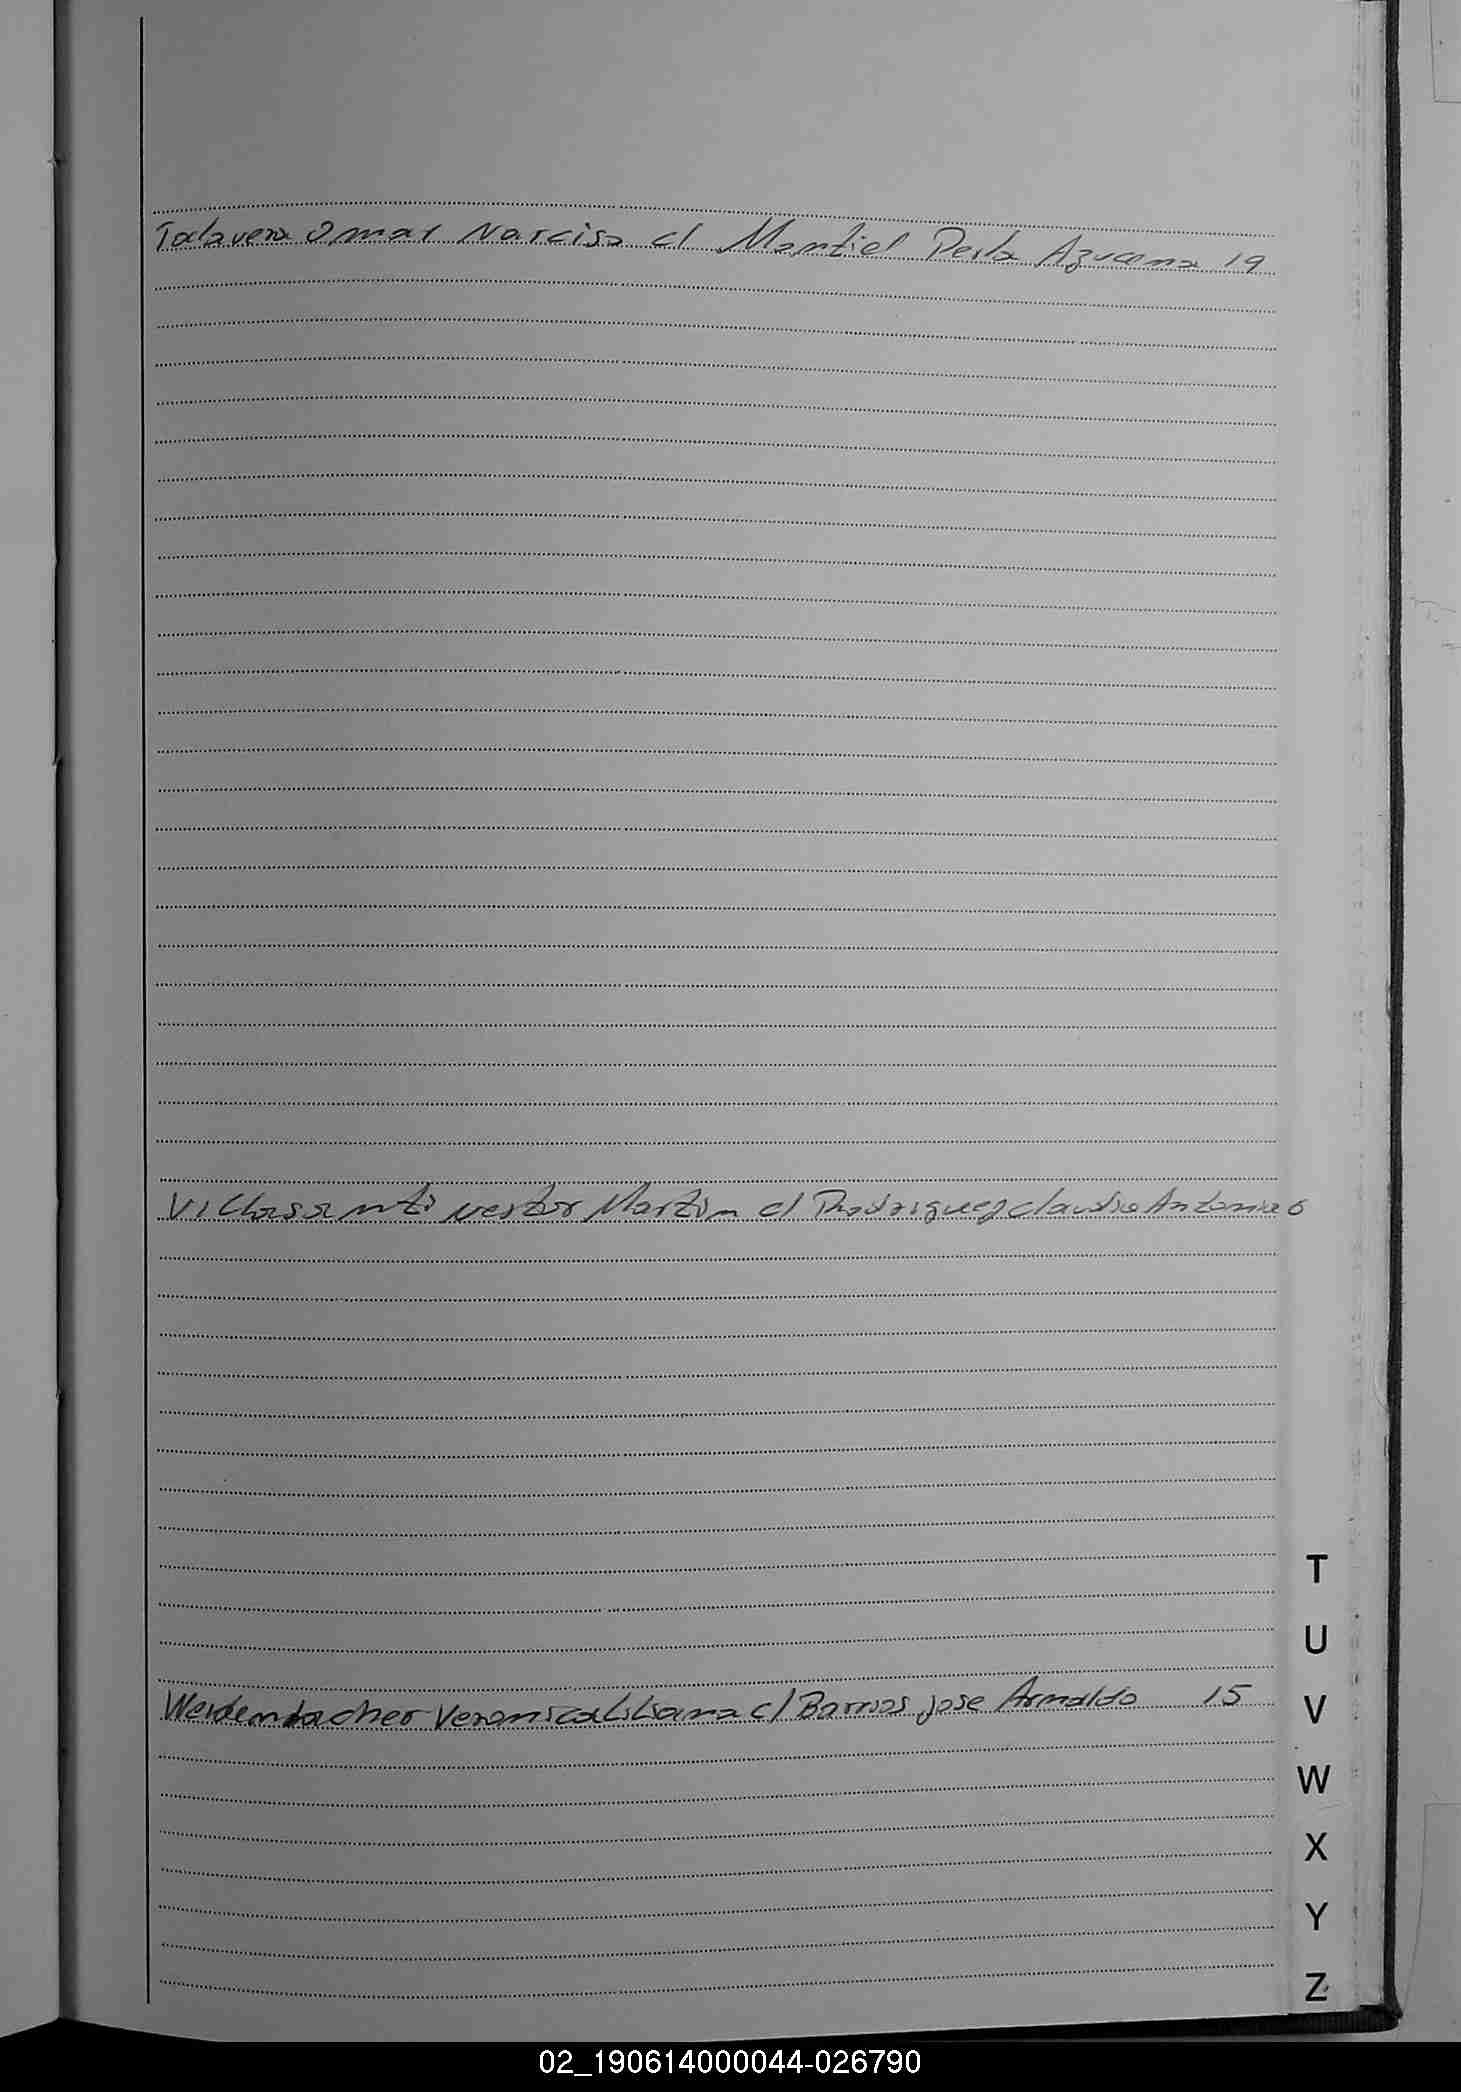 Talavera Omar Narciso c/ Montiel Perla Azucena 19
Villasanti Nestor Martin c/ Rodriguez Claudia Antonia 6
T
U
Weidenbacher Veronica Liliana c/ Barrios Jose Arnaldo 15
V
W
X
Y
Z
02_190614000044-026790